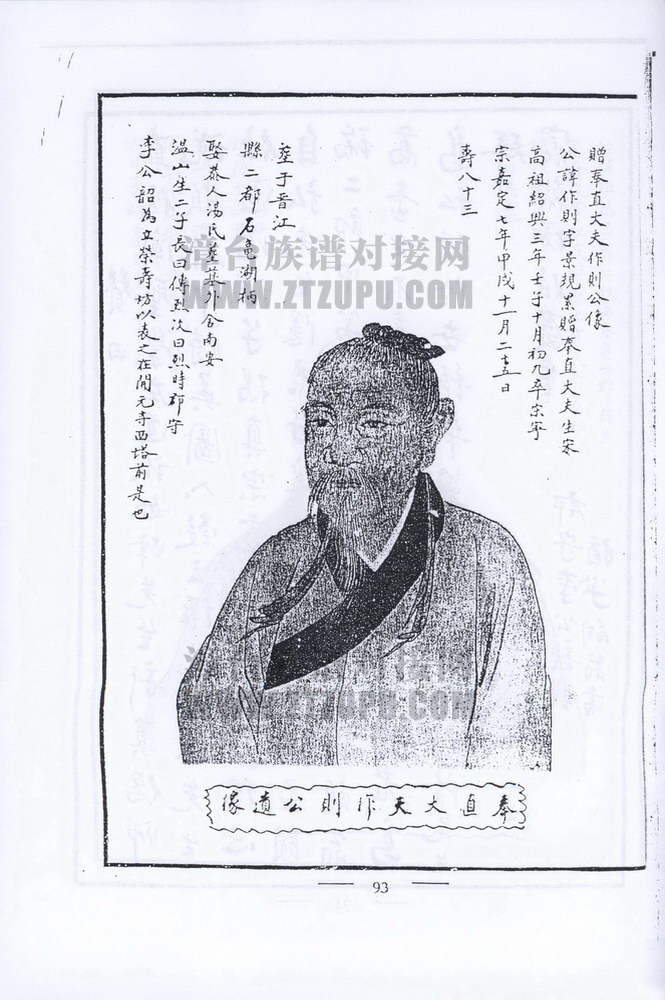 贈奉直大夫作則公像
公諱作則字景規累贈奉直大夫生宋
高祖紹興三年壬子十月初九卒宗寧
宗嘉定七年甲戌十一月二十五日
壽八十三
葬于晋江
縣二都石龜湖柄
娶蔡人湯氏墓基外舍南安
温山生二子長曰傳烈次曰烈時郡守
李公韶為立榮壽坊以表之在開元寺西塔前是也
漳台族谱对接网
WWW.ZTZUPU.COM
漳台族谱对接网
WWW.ZTZUPU.COM
奉直大夫作則公遺像
93